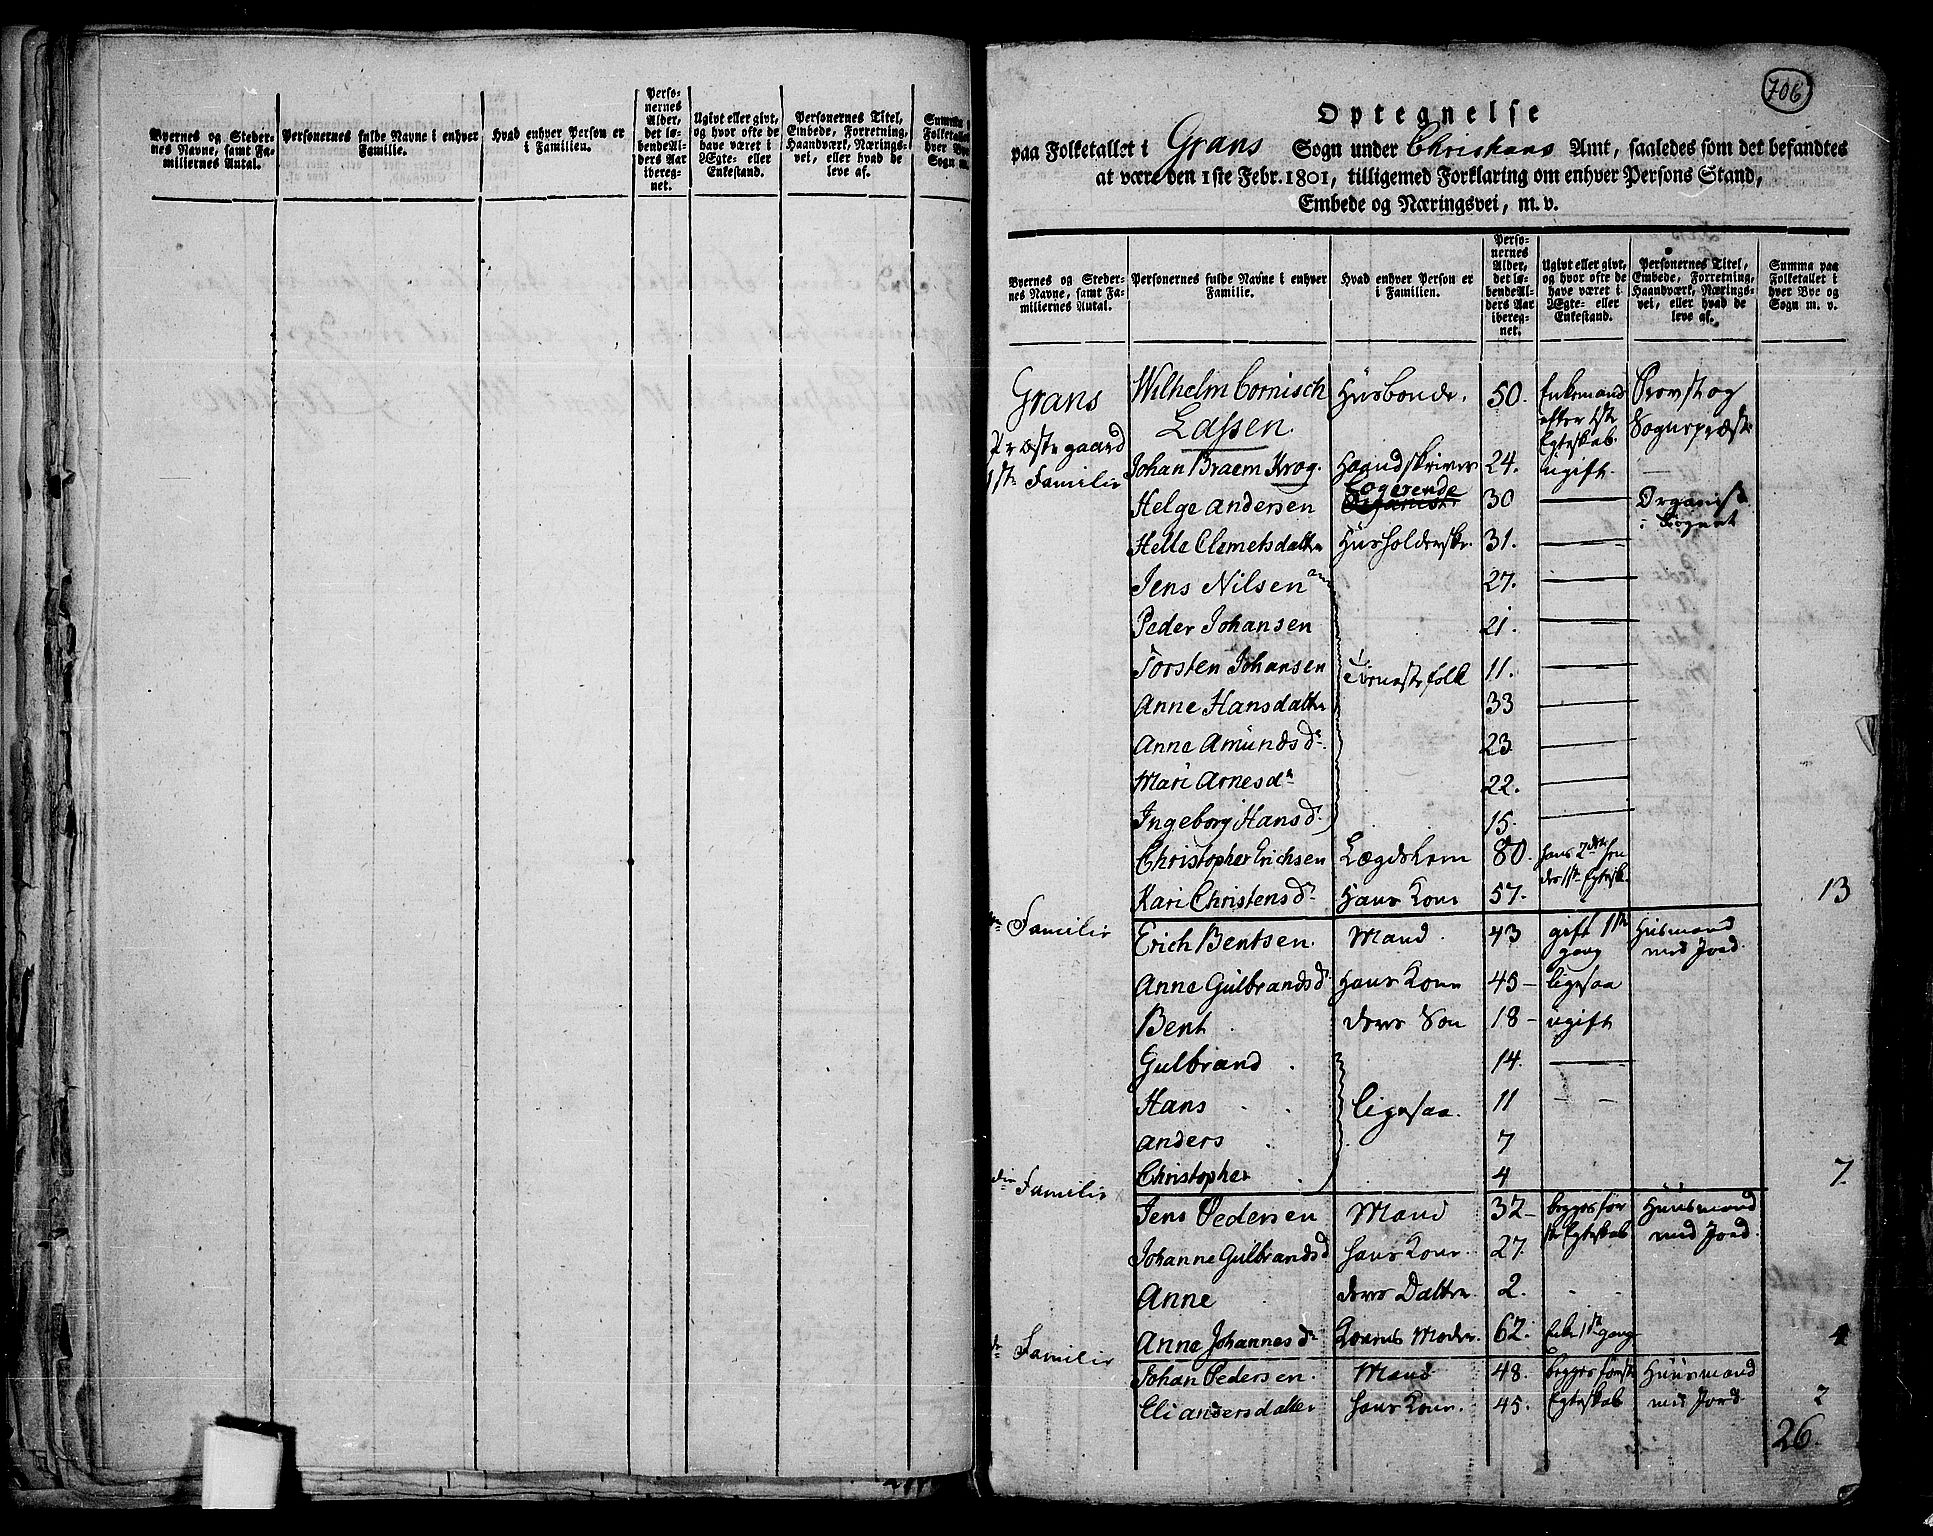 Byernes og Steder-
nes Navne, samt Fa-
miliernes Antal.
Personernes fulde Navne i enhver
Familie.
Hvad enhver Person er
i Familien.
Perso-
nernes
Alder,
det lø-
bende Al-
ders Aar
ibereg-
net.
Ugivt eller givt,
og hvor ofte de
have været i
Ægte- eller
Enkestand.
Personernes Titel,
Embede, Forretning,
Haandværk, Nærings-
vei, eller hvad de
leve af.
Summa
Folketallet
hver Bye
Sogn m.
706
Optegnelse
paa Folketallet i Grans Sogn under Christians Amt, saaledes som det befandtes
at være den 1ste Febr. 1801, tilligemed Forklaring om enhver Persons Stand,
Embede og Næringsvei, m. v.
Byernes og Steder-
nes Navne, samt Fa-
miliernes Antal.
Personernes fulde Navne i enhver
Familie.
Hvad enhver Person er
i Familien.
Perso-
nernes
Alder,
det lø-
bende Al-
ders Aar
ibereg-
net.
Ugivt eller givt,
og hvor ofte de
have været i
Ægte- eller
Enkestand.
Personernes Titel,
Embede, Forretning,
Haandværk, Nærings-
vei, eller hvad de
leve af.
Summa paa
Folketallet i
hver Bye og
Sogn m. v.
Grans Wilhelm Cornisch Husbonde. 50. Enkemand Provst og
Lassen efter 1ste Sognepræst
Præstegaard Egteskab.
1ste Familie Johan Braem Krog. Haandskriver 24. ugift. —
Logerende
Helge Andersen Organist 30 — Organist
i Sognet
Helle Clemetsdatter Husholderske. 31. —
Jens Nilsen 27. —
Peder Johansen 21. —
Torsten Johansen Tienestefolk 11. —
Anne Hansdatter 33 —
Anne Amundsdr. 23 —
Mari Arnesdr 22. —
Ingeborg Hansdr. 15. —
Christopher Erichsen Lægdslem 80. hans 2den hen
Kari Christensdr. Hans Kone 57. des 1ste Egtesk. 13
Familie Erich Bentsen. Mand. 43 gift 1ste Husmand
gang med Jord.
Anne Gulbrandsdr Hans Kone 45 — ligesaa
Bent deres Søn 18 — ugift
Gulbrand 14. —
Hans ligesaa. 11 — —
Anders 7
Christopher 4 7
Familie Jens Pedersen Mand 32 — begges før Huusmand
ste Egteskab med Jord.
Johanne Gulbrandsd hans Kone. 27.
Anne deres Datter. 2.
Anne Johannesdr Konens Moder. 62. Enke 1ste gang 4
Familie Johan Pedersen. Mand 48. begges første Huusmand
Eli Andersdatter hans Kone. 45. Egteskab med Jord. 2
26.